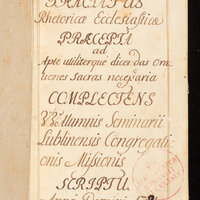 TRACTATUS
Rhetoricæ Ecclesiasticæ
PRÆCEPTA
ad
Apte utiliterque dicendas Ora
tiones Sacras necessaria
COMPLECTENS
Alumnis Seminarii
Lublinensis Congregati
onis Missionis
SCRIPTU
Anno Domini